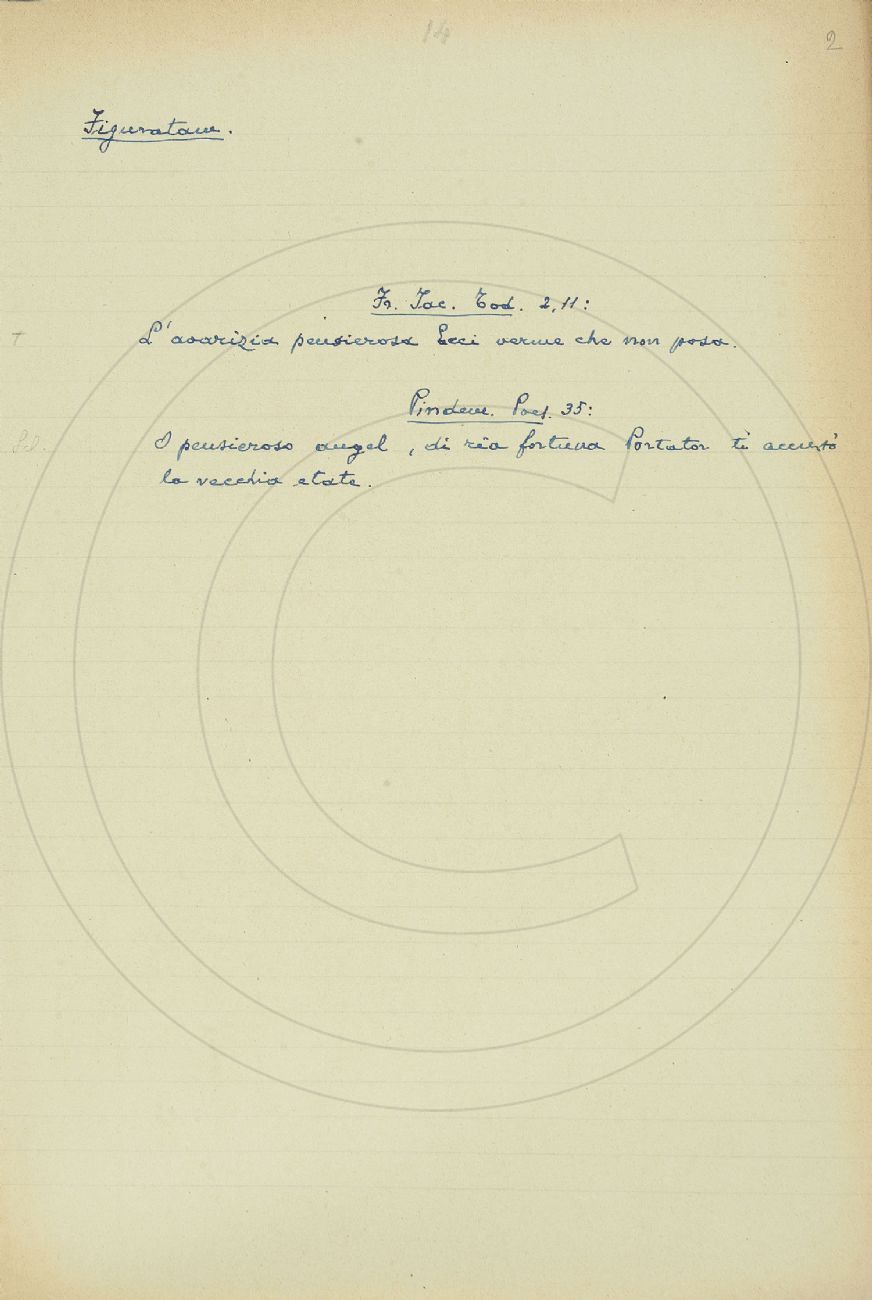 14
2
Figuratam.
Fr. Iac. Tod. 2,11:
+ L'avarizia pensierosa Ecci verme che non posa.
Pindem. Poes. 35:
O pensieroso augel, di rêa fortuna Portator ti accusò
la vecchia etate.